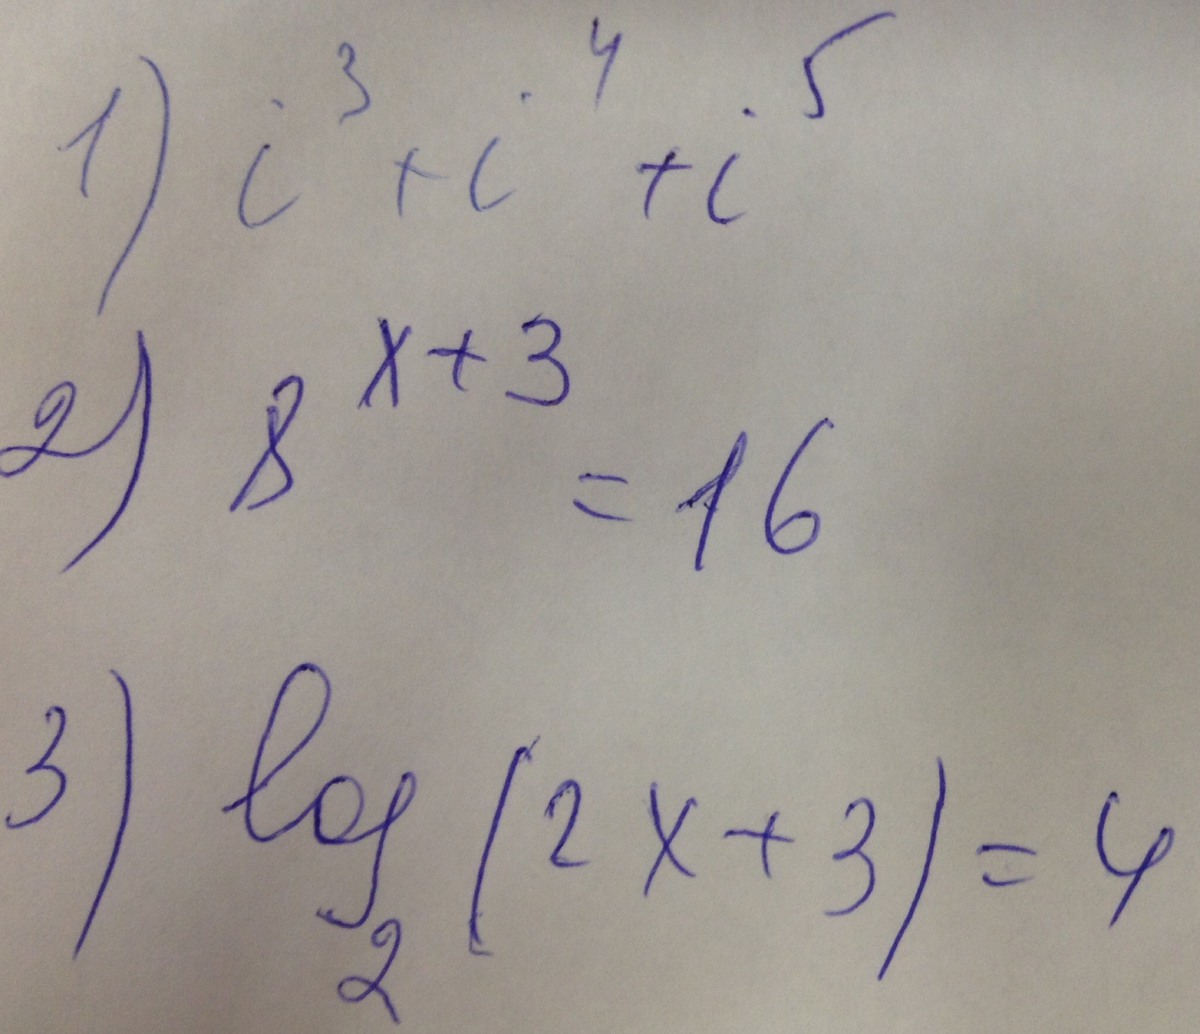 1) i³ + i⁴ + i⁵
2) 8^(x+3) = 16
3) log₂ (2x+3) = 4